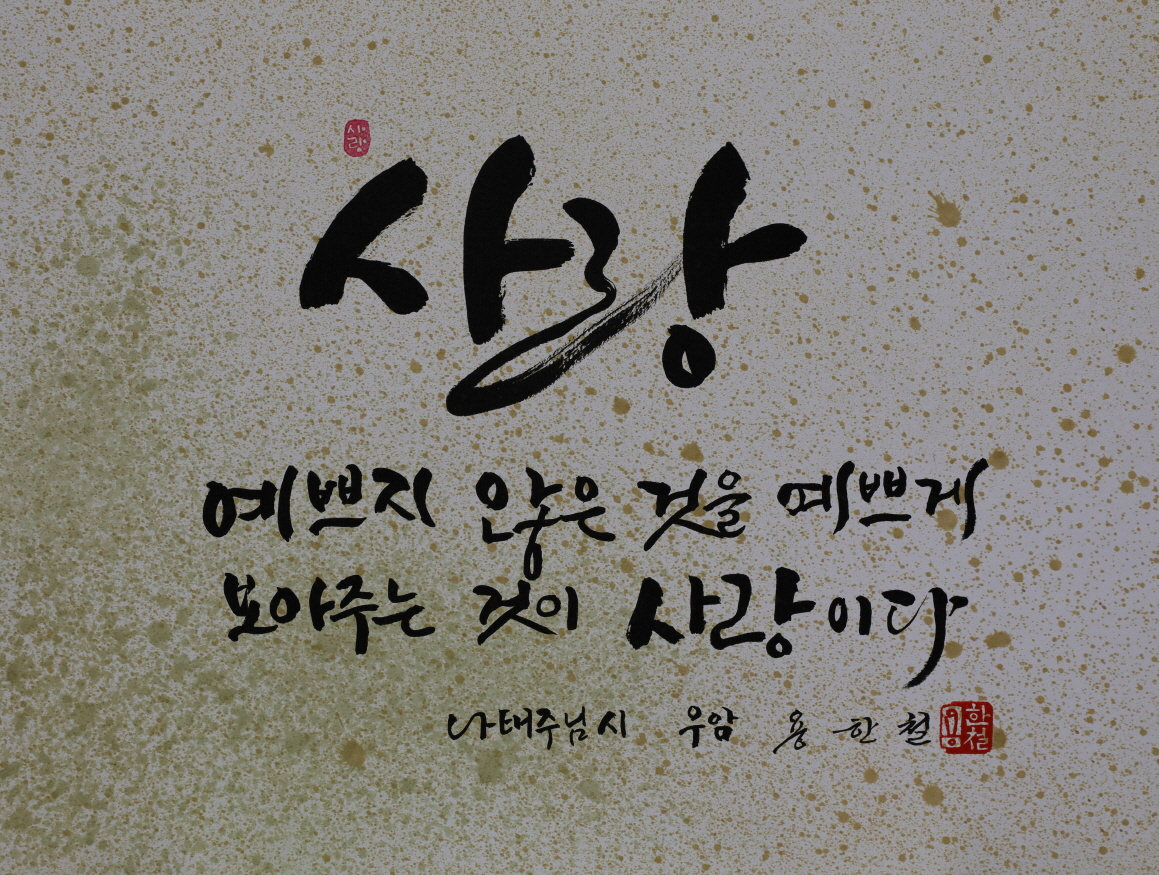 사랑
사랑
예쁘지 않은 것을 예쁘게
보아주는 것이 사랑이다
나태주님 시 우암 용 한 철
용 한철